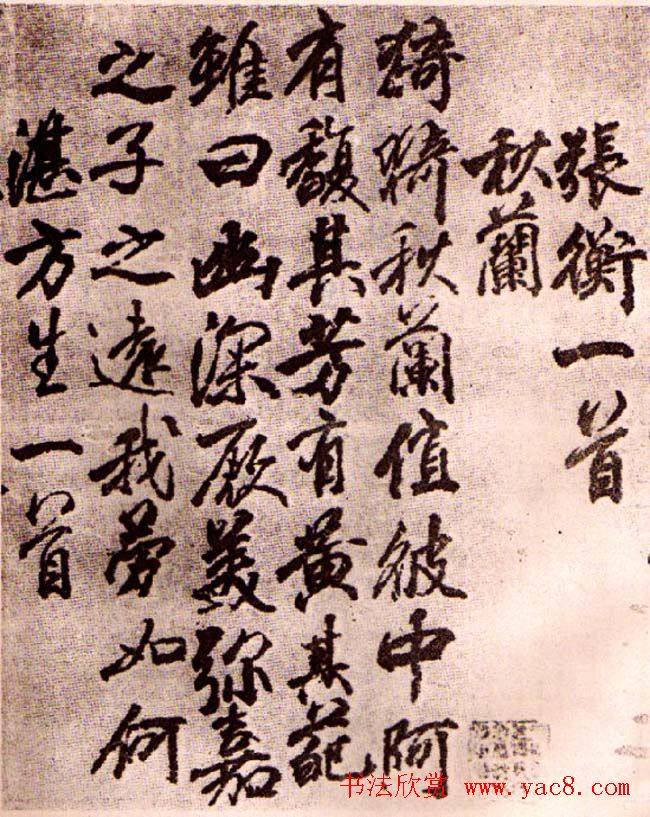 張衡一首
秋蘭
猗猗秋蘭值彼中阿
有馥其芳有黃其葩
雖曰幽深厥美弥嘉
之子之遠我勞如何
湛方生一首
书法欣赏 www.yac8.com